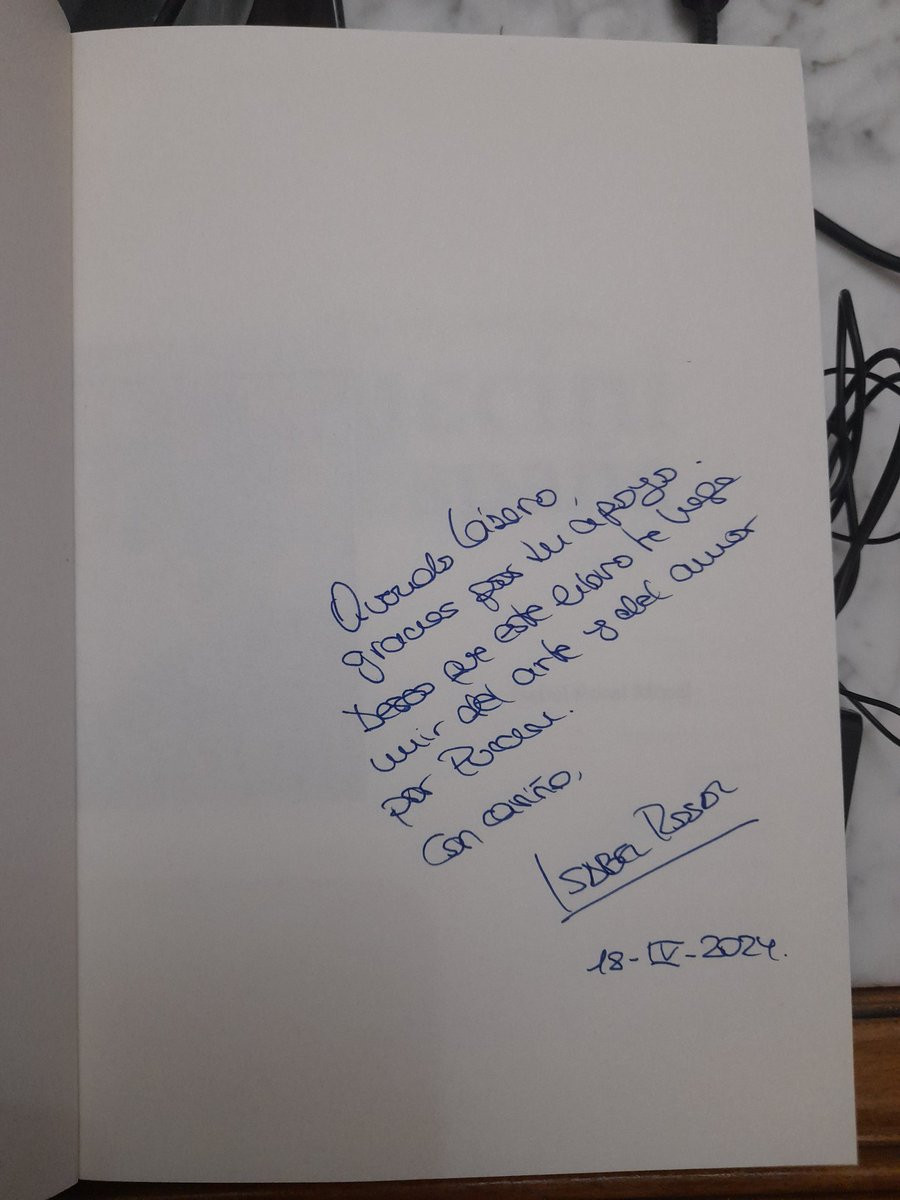 Querido
gracias por tu apoyo.
Deseo que este libro te haga
del arte y del amor
por
Con cariño,
Isabel
18-IV-2024.